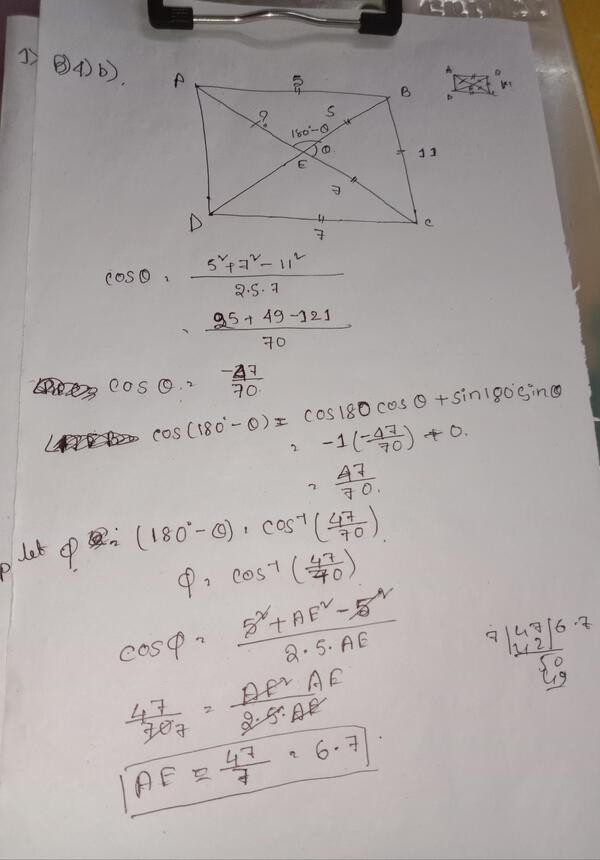 1) B) 4) b).
A 5 B A B
? 5
180°-θ θ
E 11
7
D 7 C
cosθ = 5²+7²-11² / 2·5·7
= 25+49-121 / 70
cosθ = -47/70.
cos(180°-θ) = cos180cosθ + sin180°sinθ
= -1(-47/70) + 0.
= 47/70.
let φ = (180°-θ) = cos⁻¹(47/70)
φ = cos⁻¹(47/70)
cosφ = 5²+AE²-5² / 2·5·AE
47/70 7 = AE² AE / 2·5·AE
AE = 47/7 = 6.7
7 | 47 | 6.7
42
50
49